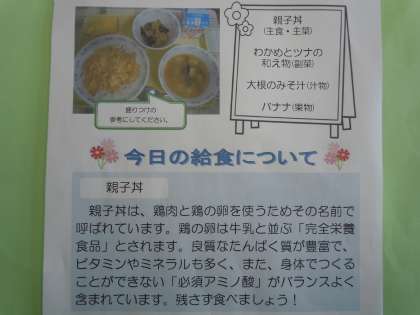 親子丼
(主食・主菜)
わかめとツナの
和え物(副菜)
大根のみそ汁(汁物)
バナナ(果物)
盛りつけの
参考にしてください。
今日の給食について
親子丼
親子丼は、鶏肉と鶏の卵を使うためその名前で
呼ばれています。鶏の卵は牛乳と並ぶ「完全栄養
食品」とされます。良質なたんぱく質が豊富で、
ビタミンやミネラルも多く、また、身体でつくる
ことができない「必須アミノ酸」がバランスよく
含まれています。残さず食べましょう！